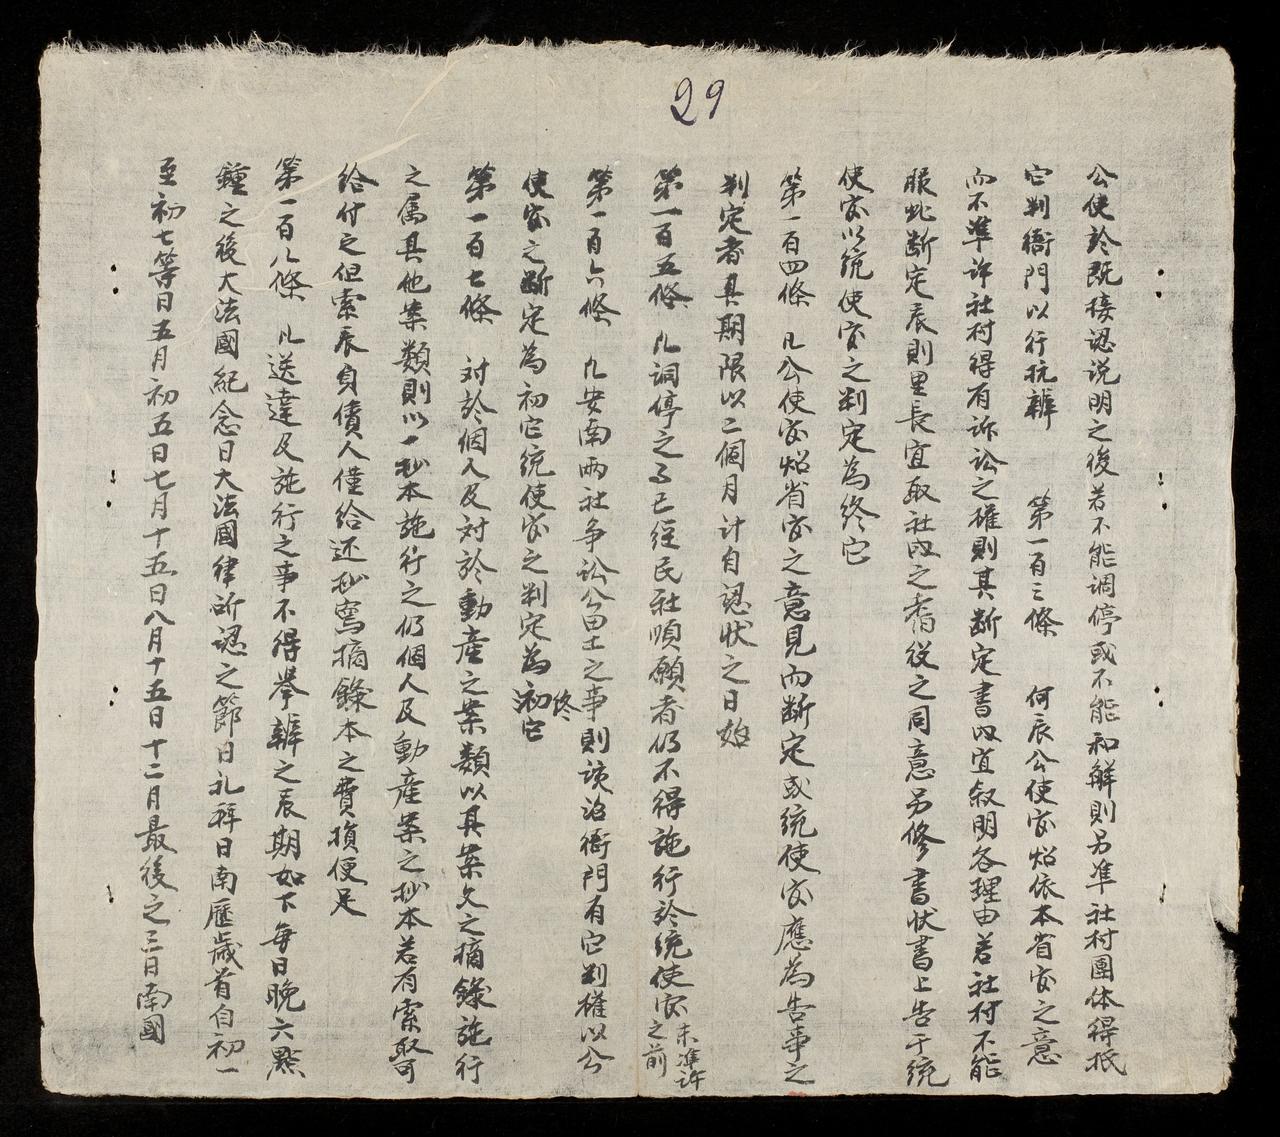 29
公使於既接認説明之後若不能調停或不能和解則另準社村團体得抵
它判衙門以行抗辨　第一百三條　何辰公使官炤依本省官之意
而不準許社村得有訴訟之權則其断定書内宜敘明各理由若社村不能
服此断定辰則里長宜取社内之耆役之同意另修書状書上告于統
使官以統使官之判定為終它
第一百四條　凡公使官炤省官之意見而断定或統使官應為告事之
判定者其期限以二個月計自認状之日始
第一百五條　凡調停之事已經民社順願者仍不得施行於統使官未准許之前
第一百六條　凡安南兩社争訟公田土之事則該治衙門有它判權以公
使官之断定為初它統使官之判定為初終它
第一百七條　対於個人及対於動產之案類以其案文之摘錄施行
之属其他案類則以一抄本施行之仍個人及動產案之抄本若有索取可
給付之但索辰負債人僅給还抄寫摘錄本之費損便足
第一百八條　凡送達及施行之事不得挙辨之辰期如下每日晚六點
鐘之後大法國紀念日大法國律所認之節日礼拜日南歷歳首自初一
至初七等日五月初五日七月十五日八月十五日十二月最後之三日南國